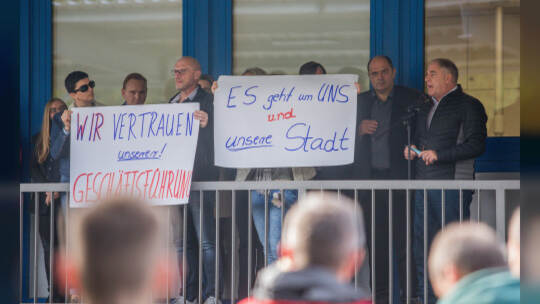 WIR VERTRAUEN
unserer!
GESCHÄFTSFÜHRUNG
ES geht um UNS
und
unsere Stadt